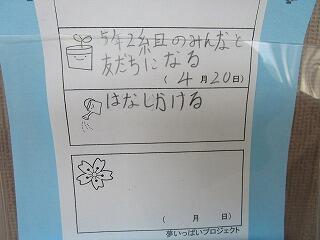 5年2組のみんなと
友だちになる
(4月20日)
はなしかける
(月日)
夢いっぱいプロジェクト